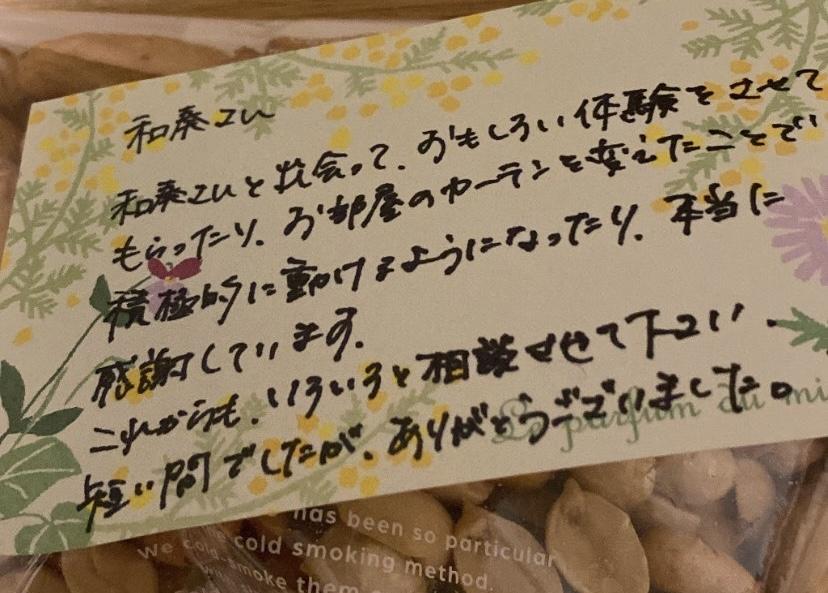 和奏さん
和奏さんと出会って、おもしろい体験をさせて
もらったり、お部屋のカーテンを変えたことで
積極的に動けるようになったり、本当に
感謝しています。
これからも、いろいろと相談させて下さい.
短い間でしたが、ありがとうございました。
Le parfum du mi
has been so particular
cold smoking method.
We cold-smoke them